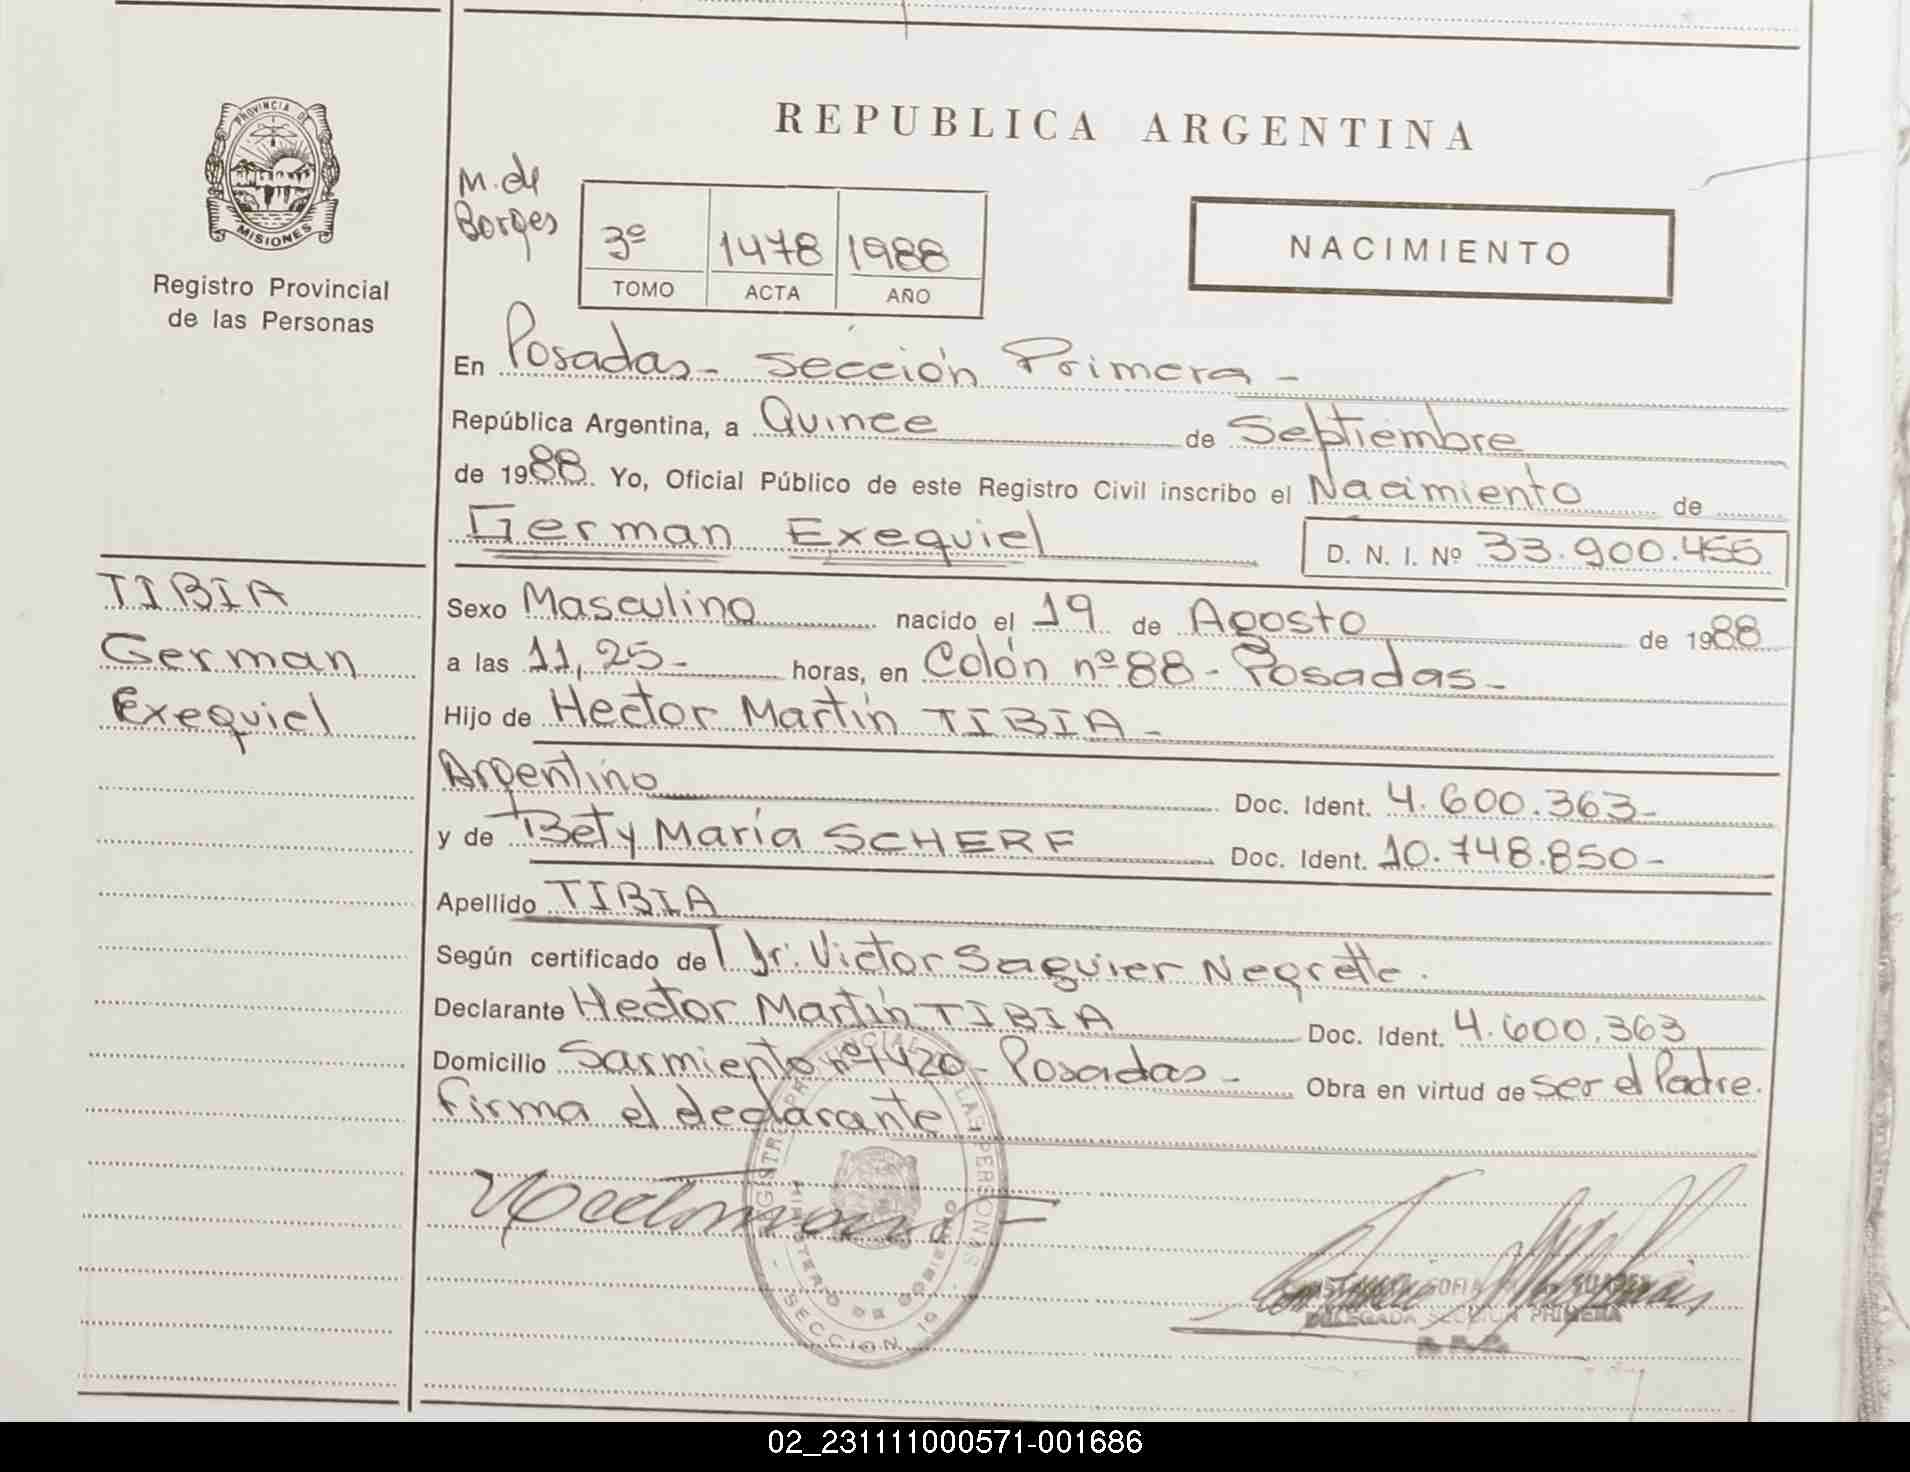 REPUBLICA ARGENTINA
PROVINCIA DE
MISIONES
Registro Provincial
de las Personas
M. de
Borges
3º 1478 1988
TOMO ACTA AÑO
NACIMIENTO
En Posadas - Sección Primera -
República Argentina, a Quince de Septiembre
de 1988. Yo, Oficial Público de este Registro Civil inscribo el Nacimiento de
German Exequiel D. N. I. Nº 33.900.455
TIBIA
German
Exequiel
Sexo Masculino nacido el 19 de Agosto de 1988
a las 11,25- horas, en Colón nº 88 - Posadas -
Hijo de Hector Martín TIBIA -
Argentino Doc. Ident. 4.600.363-
y de Bety María SCHERF Doc. Ident. 10.748.850-
Apellido TIBIA
Según certificado de Dr: Victor Saguier Negrette.
Declarante Hector Martín TIBIA Doc. Ident. 4.600.363
Domicilio Sarmiento nº 1420 - Posadas - Obra en virtud de ser el Padre.
Firma el declarante -
REGISTRO PROVINCIAL DE LAS PERSONAS
MINISTERIO DE GOBIERNO
SECCION 1º
SOFIA
DELEGADA SECCION PRIMERA
02_231111000571-001686